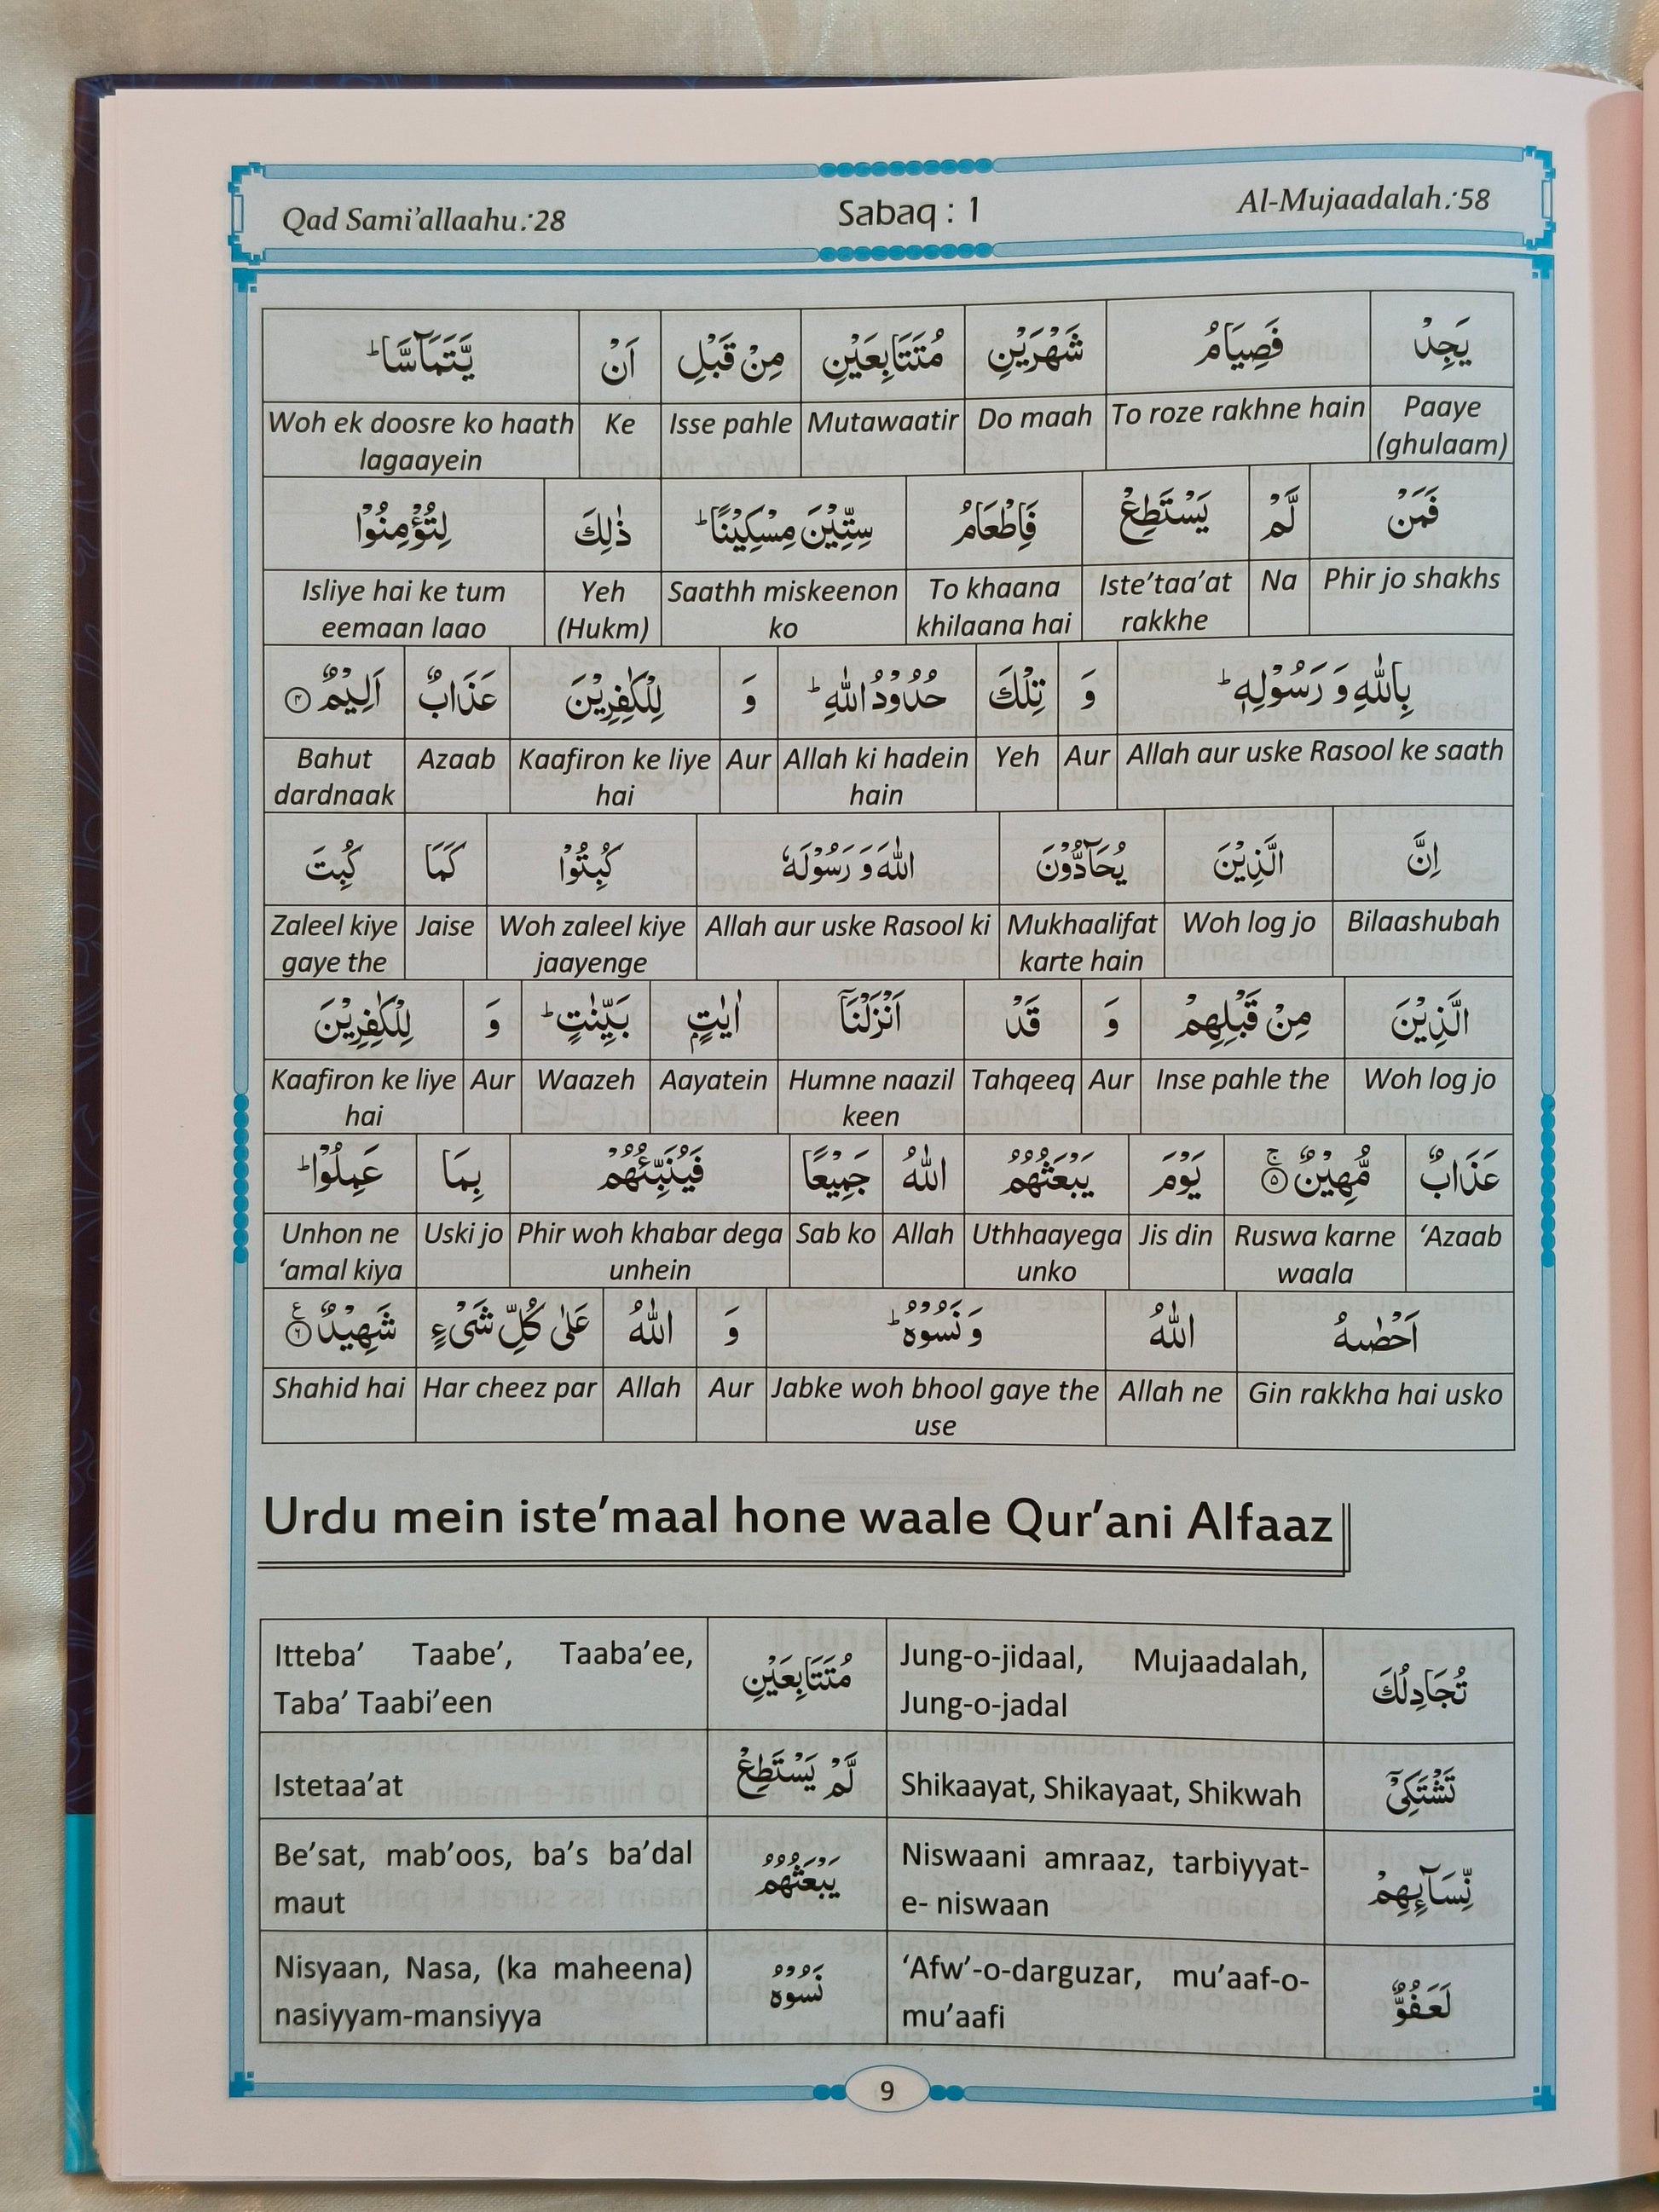 Qad Sami’allaahu:28 Sabaq : 1 Al-Mujaadalah:58
يَجِدْ فَصِيَامُ شَهْرَيْنِ مُتَتَابِعَيْنِ مِنْ قَبْلِ اَنْ يَّتَمَآسَّا ؕ
Paaye To roze rakhne hain Do maah Mutawaatir Isse pahle Ke Woh ek doosre ko haath
(ghulaam) lagaayein
فَمَنْ لَّمْ يَسْتَطِعْ فَاِطْعَامُ سِتِّيْنَ مِسْكِيْنًا ؕ ذٰلِكَ لِتُؤْمِنُوْا
Phir jo shakhs Na Iste’taa’at To khaana Saathh miskeenon Yeh Isliye hai ke tum
rakkhe khilaana hai ko (Hukm) eemaan laao
بِاللّٰهِ وَ رَسُوْلِهٖ ؕ وَ تِلْكَ حُدُوْدُ اللّٰهِ ؕ وَ لِلْكٰفِرِيْنَ عَذَابٌ اَلِيْمٌ ۴
Allah aur uske Rasool ke saath Aur Yeh Allah ki hadein Aur Kaafiron ke liye Azaab Bahut
hain hai dardnaak
اِنَّ الَّذِيْنَ يُحَآدُّوْنَ اللّٰهَ وَ رَسُوْلَهٗ كُبِتُوْا كَمَا كُبِتَ
Bilaashubah Woh log jo Mukhaalifat Allah aur uske Rasool ki Woh zaleel kiye Jaise Zaleel kiye
karte hain jaayenge gaye the
الَّذِيْنَ مِنْ قَبْلِهِمْ وَ قَدْ اَنْزَلْنَاۤ اٰيٰتٍۭ بَيِّنٰتٍ ؕ وَ لِلْكٰفِرِيْنَ
Woh log jo Inse pahle the Aur Tahqeeq Humne naazil Aayatein Waazeh Aur Kaafiron ke liye
keen hai
عَذَابٌ مُّهِيْنٌ ۚ ۵ يَوْمَ يَبْعَثُهُمُ اللّٰهُ جَمِيْعًا فَيُنَبِّئُهُمْ بِمَا عَمِلُوْا ؕ
‘Azaab Ruswa karne Jis din Uthhaayega Allah Sab ko Phir woh khabar dega Uski jo Unhon ne
waala unko unhein ‘amal kiya
اَحْصٰىهُ اللّٰهُ وَ نَسُوْهُ ؕ وَ اللّٰهُ عَلٰى كُلِّ شَيْءٍ شَهِيْدٌ ۶ ع
Gin rakkha hai usko Allah ne Jabke woh bhool gaye the Aur Allah Har cheez par Shahid hai
use
Urdu mein iste’maal hone waale Qur’ani Alfaaz
تُجَادِلُكَ Jung-o-jidaal, Mujaadalah, مُتَتَابِعَيْنِ Itteba’ Taabe’, Taaba’ee,
Jung-o-jadal Taba’ Taabi’een
تَشْتَكِيْۤ Shikaayat, Shikayaat, Shikwah لَّمْ يَسْتَطِعْ Istetaa’at
نِّسَآئِهِمْ Niswaani amraaz, tarbiyyat- يَبْعَثُهُمُ Be’sat, mab’oos, ba’s ba’dal
e- niswaan maut
لَعَفُوٌّ ‘Afw’-o-darguzar, mu’aaf-o- نَسُوْهُ Nisyaan, Nasa, (ka maheena)
mu’aafi nasiyyam-mansiyya
9